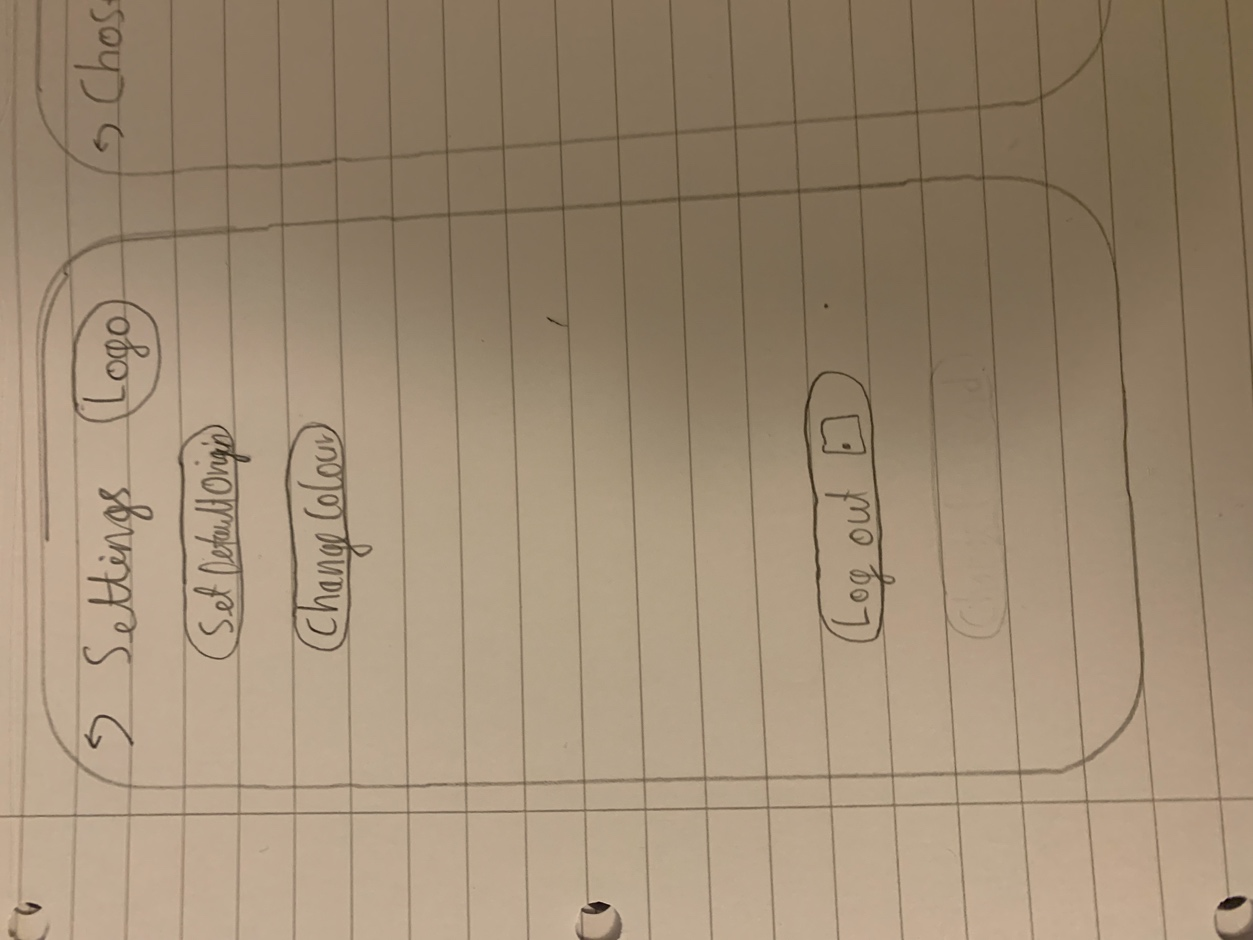 Settings Logo
Set Default Origin
Change Colour
Log out